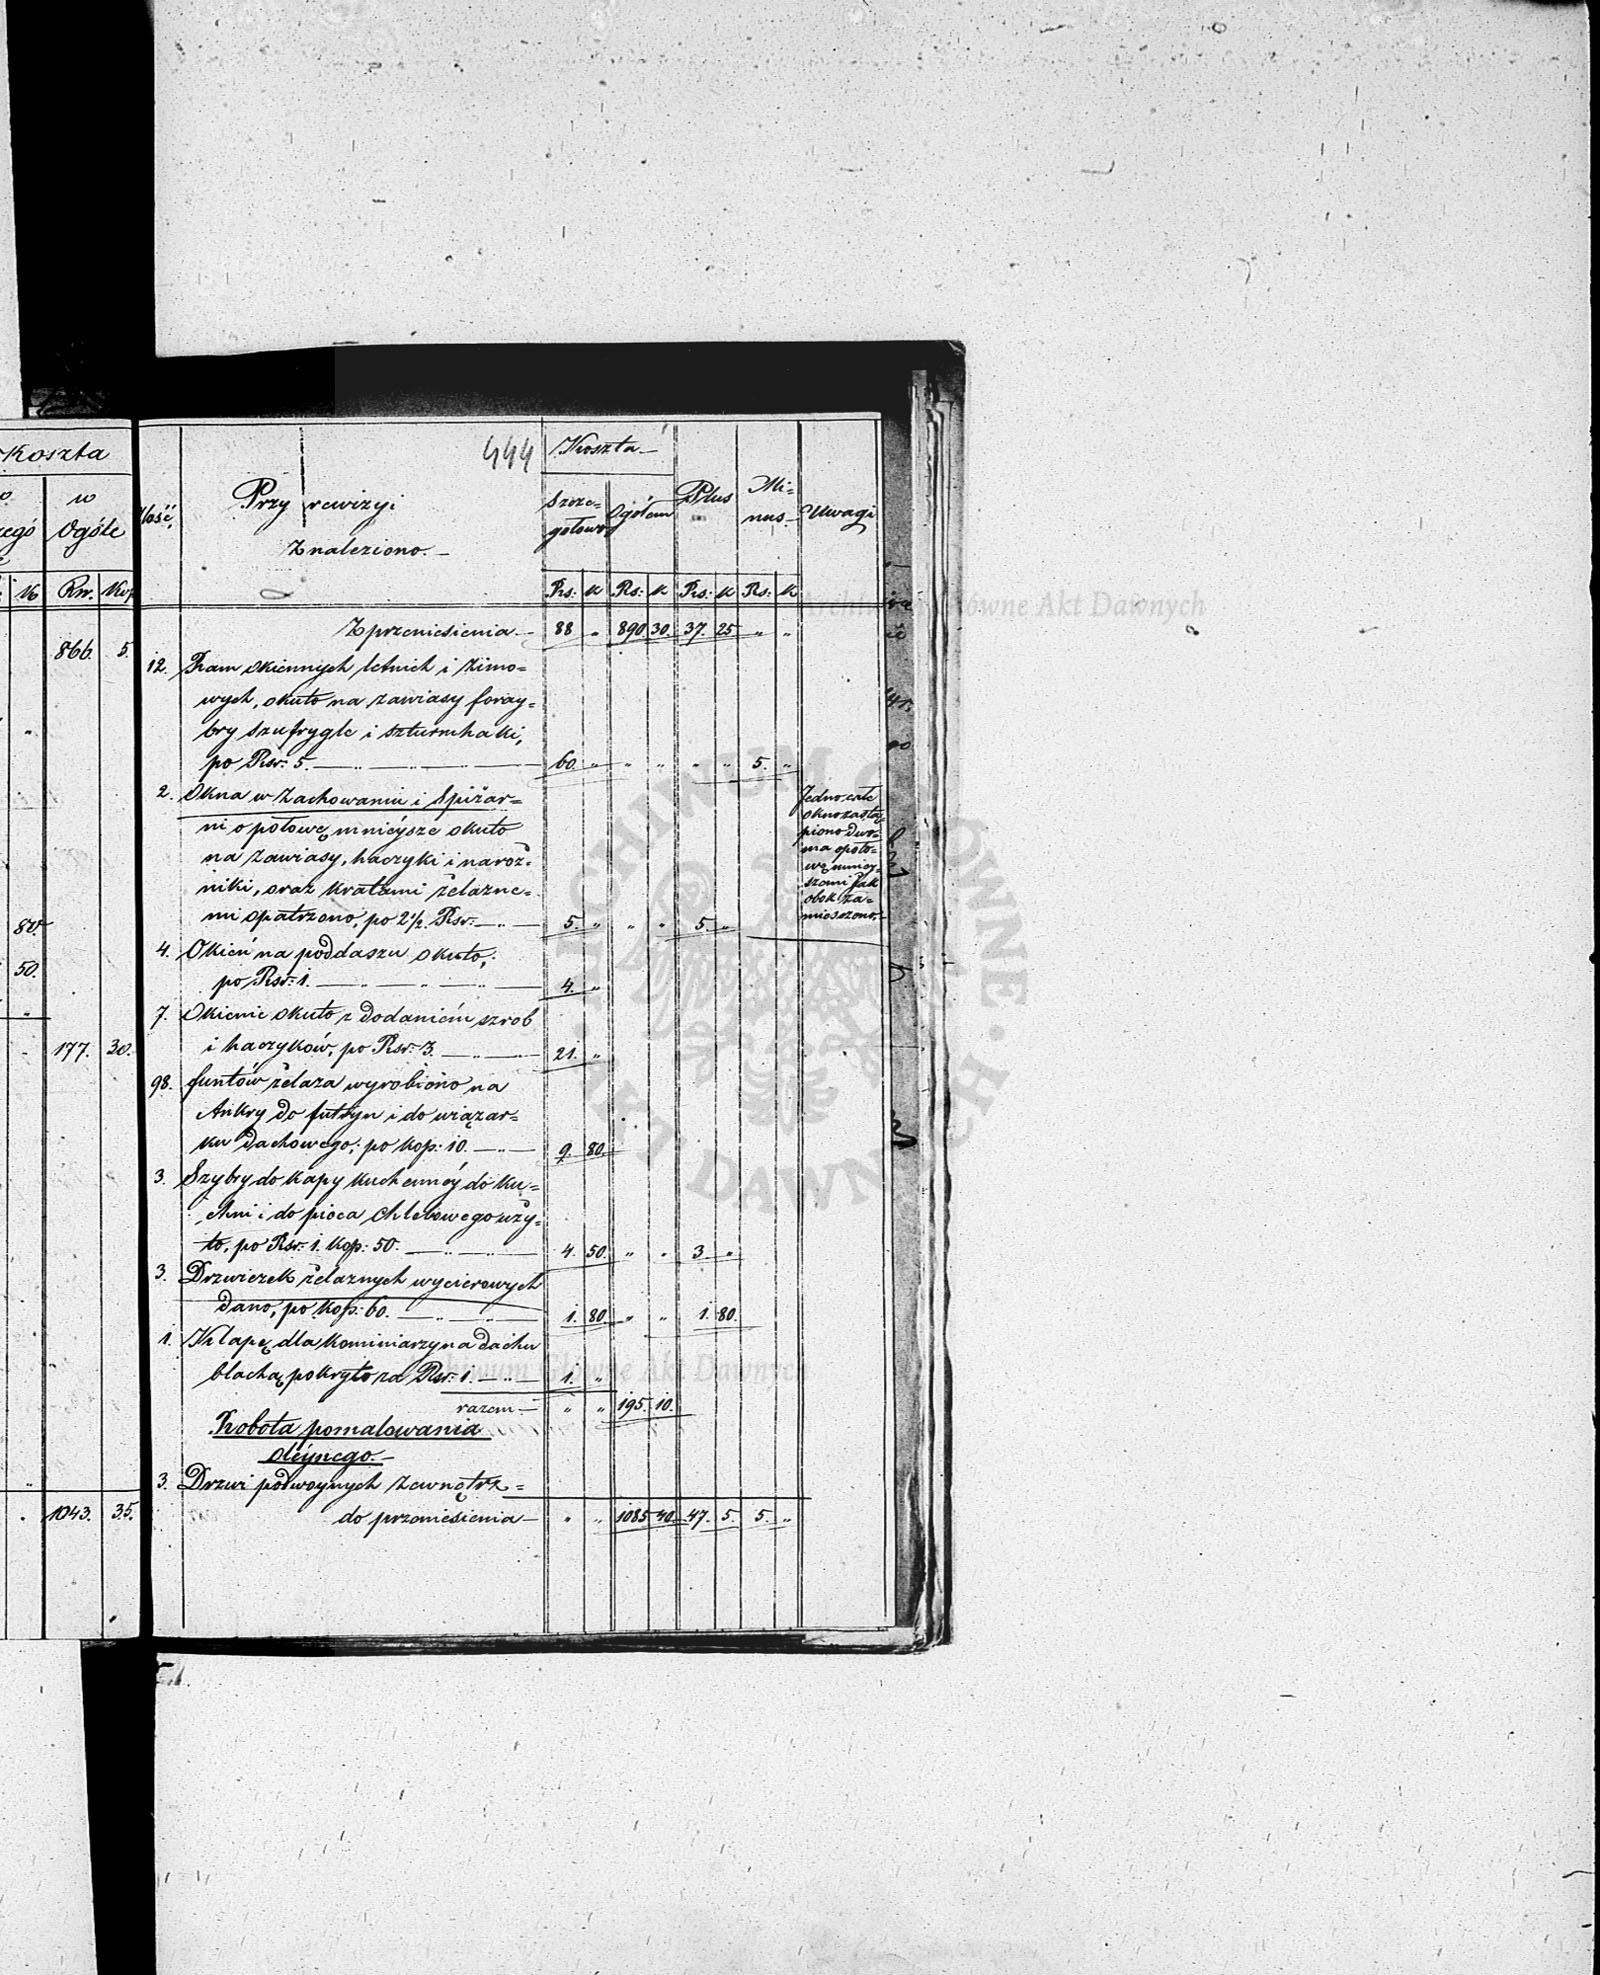 Koszta
w
Ogóle
K Rsr. Kop.
866. 5.
80.
50.
177. 30.
1043. 35.
444
Ilość,
Przy rewizyi
Znaleziono.
Koszta
Szcze-
gółowo
Ogółem
Plus
Mi-
nus.
Uwagi
Rs: K Rs: K Rs: K Rs: K
Z przeniesienia. 88 „ 890. 30. 37. 25 „ „
12. Ram okiennych letnich i zimo=
wych, okuto na zawiasy foray=
bry szufrygle i szturmhaki,
po Rsr: 5. 60. „ „ „ „ „ 5. „
2. Okna w Zachowaniu i Spiżar=
ni o połowę mnieysze okuto
na zawiasy, haczyki i naroż=
niki, oraz kratami żelazne=
mi opatrzono, po 2 1/2. Rsr: 5. „ „ „ 5. „
Jedno całe
okno zastą-
piono dwo-
ma o poło-
wę mniey-
szemi jak
obok za-
mieszczono.
4. Okień na poddaszu okuto,
po Rsr: 1. 4. „
7. Okienic okuto z dodaniem szrob
i haczyków, po Rsr: 3. 21. „
98. funtów żelaza wyrobiono na
Ankry do futryn i do wiązar=
ku dachowego; po kop: 10. 9. 80.
3. Szybry do kapy kuchennéy do ku=
chni i do pieca chlebowego uży=
to, po Rsr: 1. kop: 50. 4. 50. „ „ 3 „
3. Drzwiczek żelaznych wycierowych
dano, po kop: 60. 1. 80. „ „ 1. 80.
1. Klapę dla kominiarzy na dachu
blachą pokryto za Rsr: 1. 1. „
razem „ „ 195. 10.
Robota pomalowania
oleynego.
3. Drzwi podwoynych zewnętrz=
do przeniesienia „ „ 1085 40. 47. 5. 5. „
Archiwum Główne Akt Dawnych
ARCHIWUM GŁÓWNE AKT DAWNYCH
Archiwum Główne Akt Dawnych